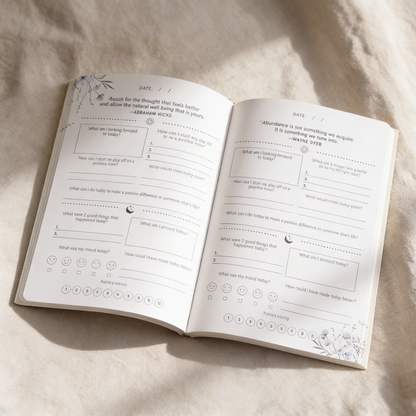 DATE: / /
Reach for the thought that feels better
and allow the natural well being that is yours.
—ABRAHAM HICKS
What am I looking forward
to today?
How can I start my day off
on a positive note?
1.
2.
3.
How can I start my day off on a
positive note?
What could make today great?
What can I do today to make a positive difference in someone else's life?
What were 2 good things that
happened today?
1.
2.
What am I proud today?
What was my mood today?
How could I have made today better?
DATE: / /
Abundance is not something we acquire.
It is something we tune into.
—WAYNE DYER
What am I looking forward
to today?
1.
2.
3.
How can I start my day off on a
positive note?
What could make today great?
What can I do today to make a positive difference in someone else's life?
What were 2 good things that
happened today?
1.
2.
What am I proud today?
What was my mood today?
How could I have made today better?